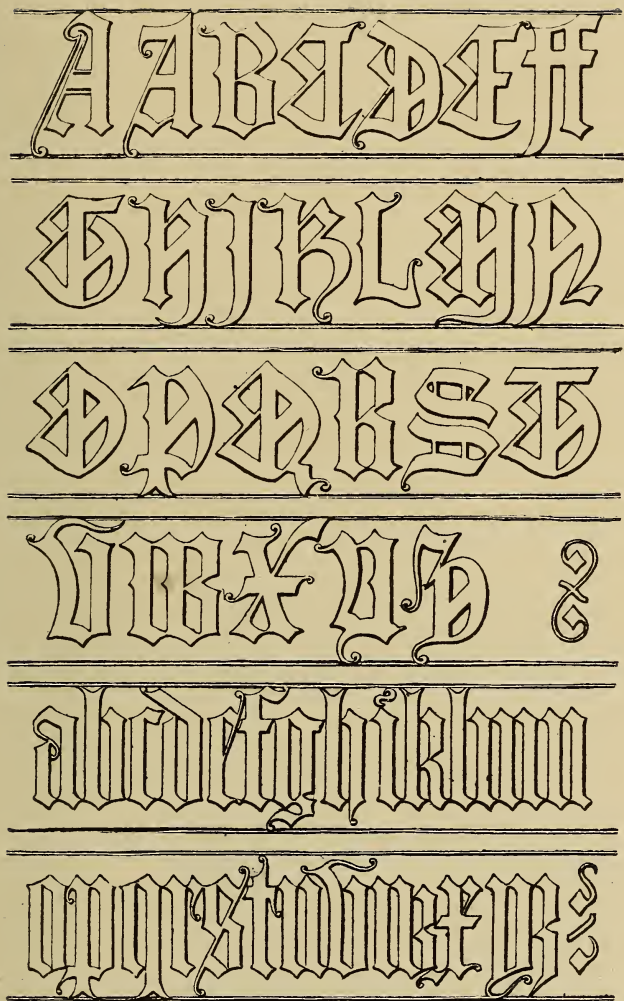 A A B C D E F
G H I K L M N
O P Q R S T
V W X Y Z
a b c d e f g h i k l m n
o p q r s t u v w x y z